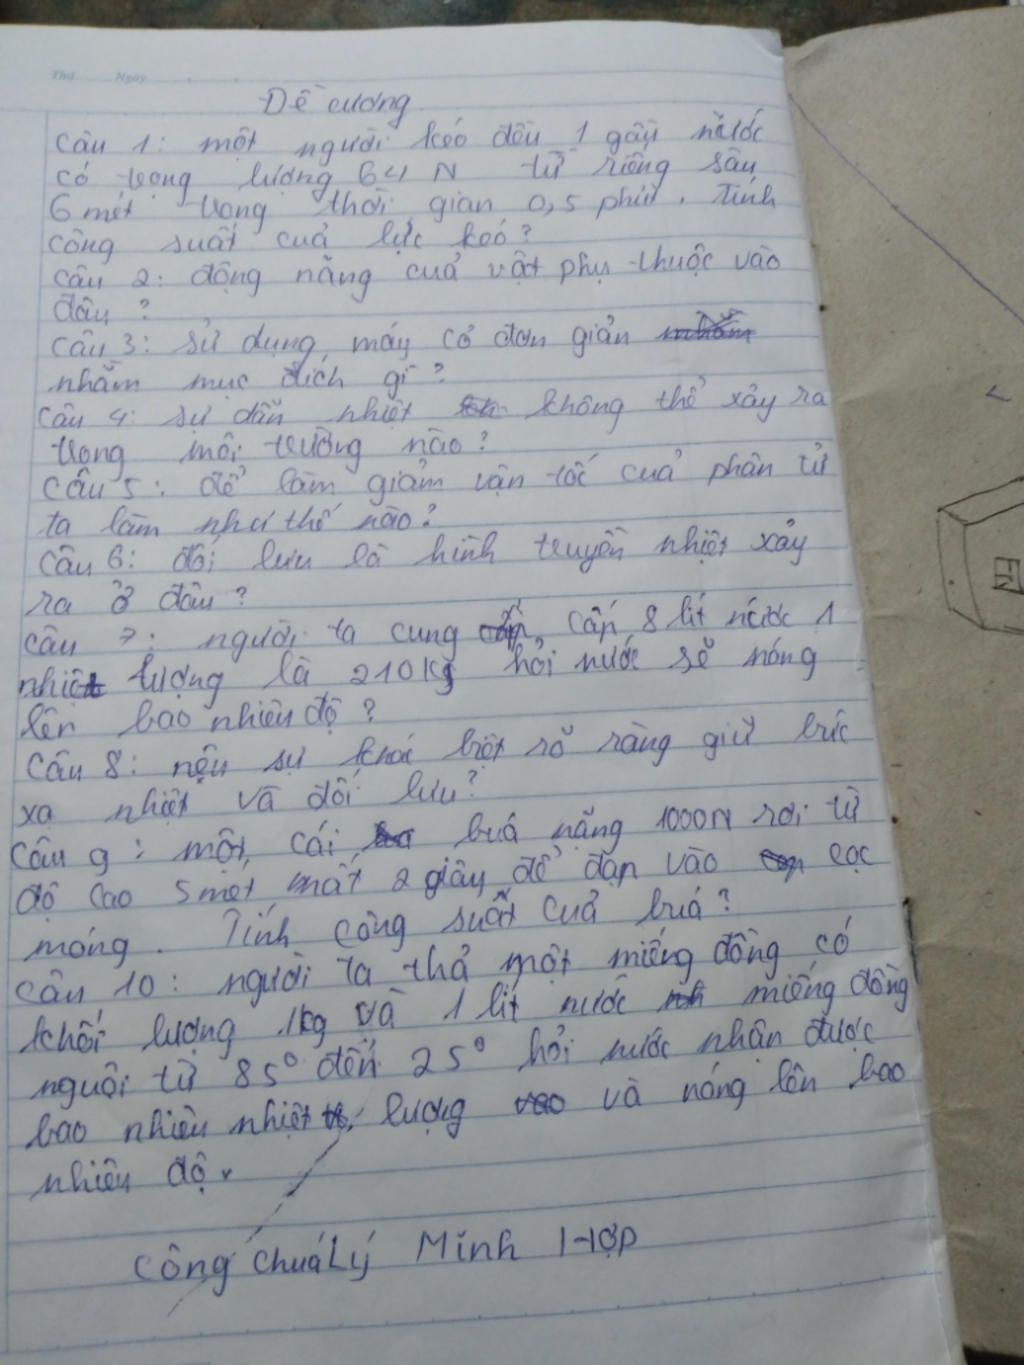 Thứ Ngày
Đề cương
Câu 1: một người kéo đều 1 gầu nước
có trọng lượng 64 N từ riếng sâu
6 mét trong thời gian 0,5 phút. Tính
công suất cuả lực kéo?
Câu 2: động năng cuả vật phụ thuộc vào
đâu?
Câu 3: sử dụng máy cơ đơn giản
nhằm mục đích gì?
Câu 4: sự dẫn nhiệt không thể xảy ra
trong môi trường nào?
Câu 5: để làm giảm vận tốc cuả phân tử
ta làm như thế nào?
Câu 6: đối lưu là hình truyền nhiệt xảy
ra ở đâu?
Câu 7: người ta cung cấp 8 lít nước 1
nhiệt lượng là 210Kg hỏi nước sẽ nóng
lên bao nhiêu độ?
Câu 8: nêu sự khác biệt rõ ràng giữ bức
xạ nhiệt và đối lưu?
Câu 9: một cái buá nặng 1000N rơi từ
độ cao 5 mét mất 2 giây để đập vào cọc
móng. Tính công suất cuả buá?
Câu 10: người ta thả một miếng đồng có
khối lượng 1kg và 1 lít nước miếng đồng
nguội từ 85° đến 25° hỏi nước nhận được
bao nhiêu nhiệt lượng và nóng lên bao
nhiêu độ.
Công Chuá Lý Minh Hợp
EN